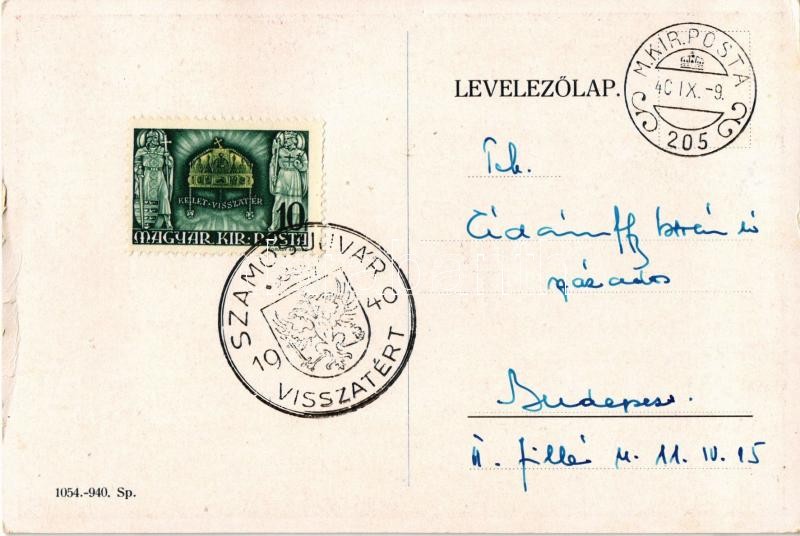 LEVELEZŐLAP.
M. KIR. POSTA
40 IX. -9.
205
KELET-VISSZATÉR
10
MAGYAR KIR. POSTA
SZAMOSUJVÁR
1940
VISSZATÉRT
Tek.
István
Budapest
II. fillér u. 11. IV. 15
1054.-940. Sp.